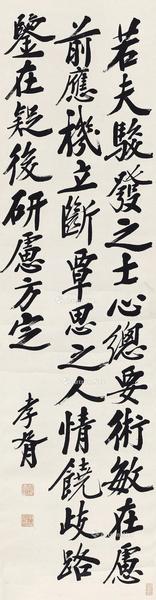 若夫駿發之士心總要術敏在慮
前應機立斷覃思之人情饒歧路
鑒在疑後研慮方定
孝胥